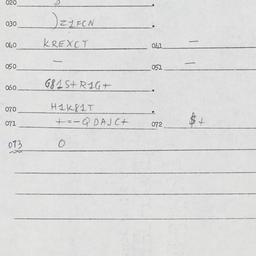 020 .
030 )Z1FCN .
040 KREXCT 041 —
050 — 051 —
060 G81S+R1G+ .
070 H1K81T .
071 +=-QDAJC+ 072 $+
073 O